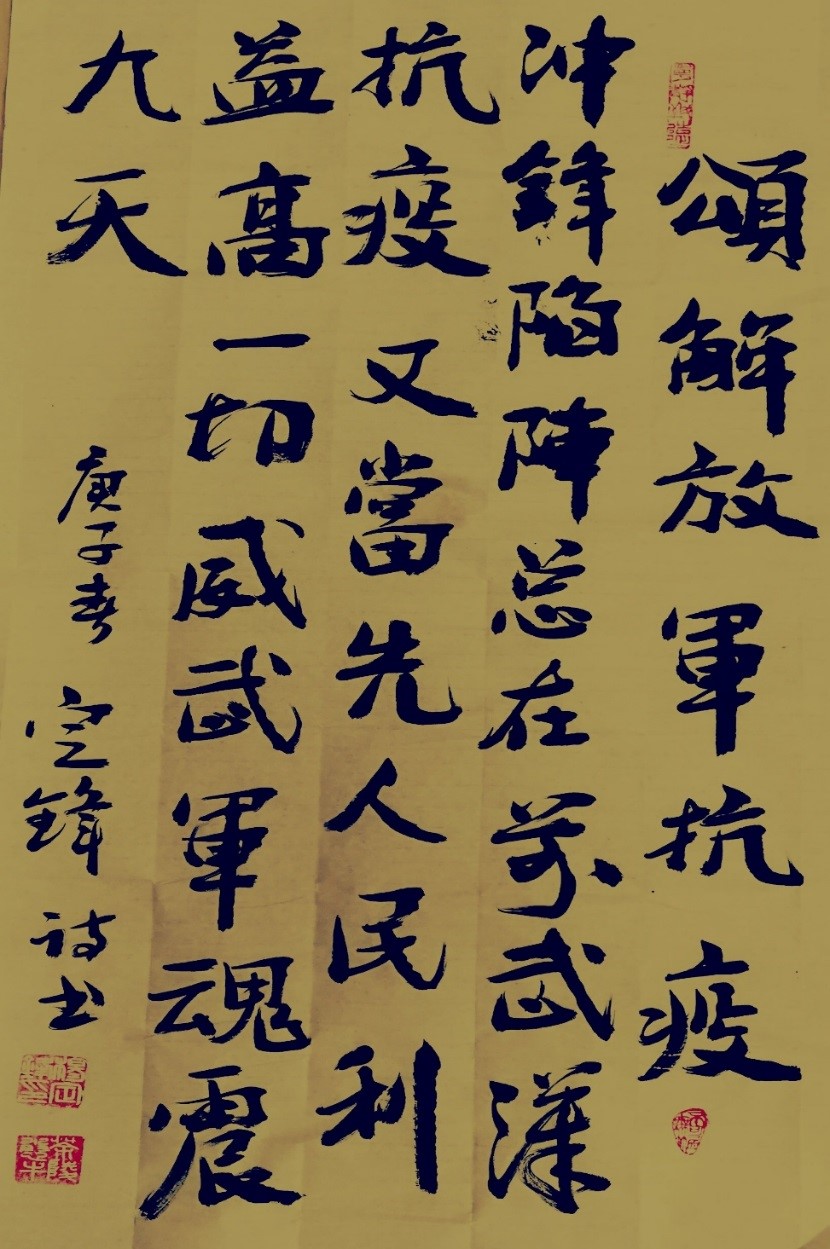 頌解放軍抗疫
冲鋒陷陣总在前武漢
抗疫又當先人民利
益高一切威武軍魂震
九天
庚子春
定鋒詩书